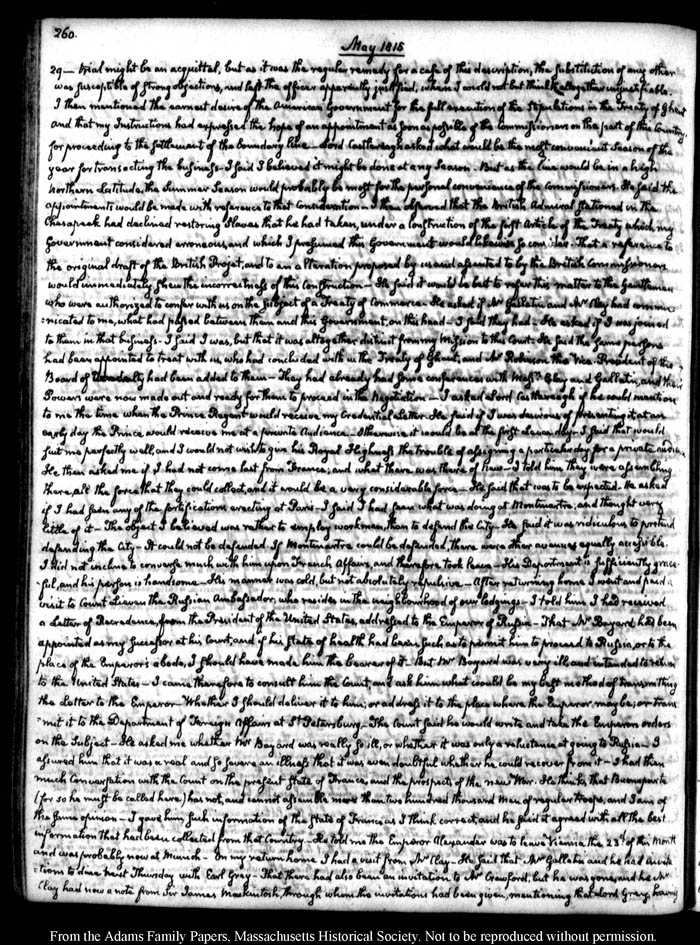 260.
May 1815
29 — trial might be an acquittal, but as it was the regular remedy for a case of this description, the substitution of any other
was susceptible of strong objections, and left the officer apparently justified, when I could not but think it altogether unjustifiable.
I then mentioned the earnest desire of the American Government for the full execution of the Stipulations in the Treaty of Ghent
and that my Instructions had expressed the hope of an appointment as soon as possible of the Commissioners on the part of this Country
for proceeding to the settlement of the boundary line — Lord Castlereagh asked what would be the most convenient Season of the
year for transacting the business — I said I believed it might be done at any Season. But as the line would be in a high
Northern Latitude, the Summer Season would probably be most for the personal convenience of the Commissioners. He said the
appointments would be made with reference to that Consideration — I then observed that the British Admiral stationed in the
Chesapeak had declined restoring Slaves that he had taken, under a Construction of the first Article of the Treaty which my
Government considered erroneous, and which I presumed this Government would likewise so consider. That a reference to
the original draft of the British Projet, and to an alteration proposed by us and assented to by the British Commissioners
would immediately shew the incorrectness of this Construction — He said it would be best to refer this matter to the Gentlemen
who were authorized to confer with us on the subject of a Treaty of Commerce. He asked if Mr Gallatin and Mr Clay had commu-
=nicated to me, what had passed between them and this Government, on this head — I said they had. He asked if I was joined
to them in that business — I said I was, but that it was altogether distinct from my Mission to this Court. He said the same persons
had been appointed to treat with us, who had concluded with us the Treaty of Ghent, and Mr Robinson the Vice-President of the
Board of had been added to them — They had already had some conferences with Messrs Clay and Gallatin, and their
Powers were now made out and ready for them to proceed in the Negotiation — I asked Lord Castlereagh if he could mention
to me the time when the Prince Regent would receive my Credential Letter. He said if I was desirous of presenting it at an
early day the Prince would receive me at a private Audience — Otherwise it would be at the first Levee-day. I said that would
suit me perfectly well, and I would not wish to give his Royal Highness the trouble of assigning a particular day for a private audience
He then asked me if I had not come last from France; and what there was there of new — I told him they were assembling
there, all the force that they could collect, and it would be a very considerable force — He said that was to be expected. He asked
if I had seen any of the fortifications erecting at Paris — I said I had seen what was doing at Montmartre, and thought very
little of it — The object I believed was rather to employ workmen, than to defend the City — He said it was ridiculous to pretend
defending the City — It could not be defended. If Montmartre could be defended, there were other avenues equally accessible.
I did not incline to converse much with him upon French Affairs, and therefore took leave — His Deportment is sufficiently grace-
ful, and his person is handsome — His manner was cold, but not absolutely repulsive — After returning home I went and paid a
visit to Count Lieven the Russian Ambassador, who resides in the neighbourhood of our lodgings — I told him I had received
a Letter of Recredence, from the President of the United States, addressed to the Emperor of Russia — That Mr Bayard had been
appointed as my Successor at his Court, and if his state of health had been such as to permit him to proceed to Russia, or to the
place of the Emperor's abode, I should have made him the bearer of it. But Mr Bayard was very ill and intended to return
to the United States — I came therefore to consult him the Count, and ask him what would be my best method of transmitting
the Letter to the Emperor — Whether I should deliver it to him; or address it to the place where the Emperor may be; or trans=
mit it to the Department of Foreign Affairs at St Petersburg — The Count said he would write and take the Emperors orders
on the Subject — He asked me whether Mr Bayard was really so ill, or whether it was only a reluctance at going to Russia. I
assured him that it was a real and so severe an illness that it was even doubtful whether he could recover from it — I had then
much Conversation with the Count on the present State of France, and the prospects of the new War. He thinks that Buonaparte
(for so he must be called here) has not, and cannot assemble more than two hundred thousand Men of regular troops, and I am of
the same opinion — I gave him such information of the state of France as I think correct, and he said it agreed with all the best
information that had been collected from that Country — He told me the Emperor Alexander was to leave Vienna the 23d of this Month
and was probably now at Munich — On my return home I had a visit from Mr Clay — He said that Mr Gallatin and he had invita
=tions to dine next Thursday with Earl Grey — That there had also been an invitation to Mr Crawford, but he was gone, and he Mr
Clay had now a note from Sir James Mackintosh, through whom the invitations had been given, mentioning that Lord Grey, having
From the Adams Family Papers, Massachusetts Historical Society. Not to be reproduced without permission.